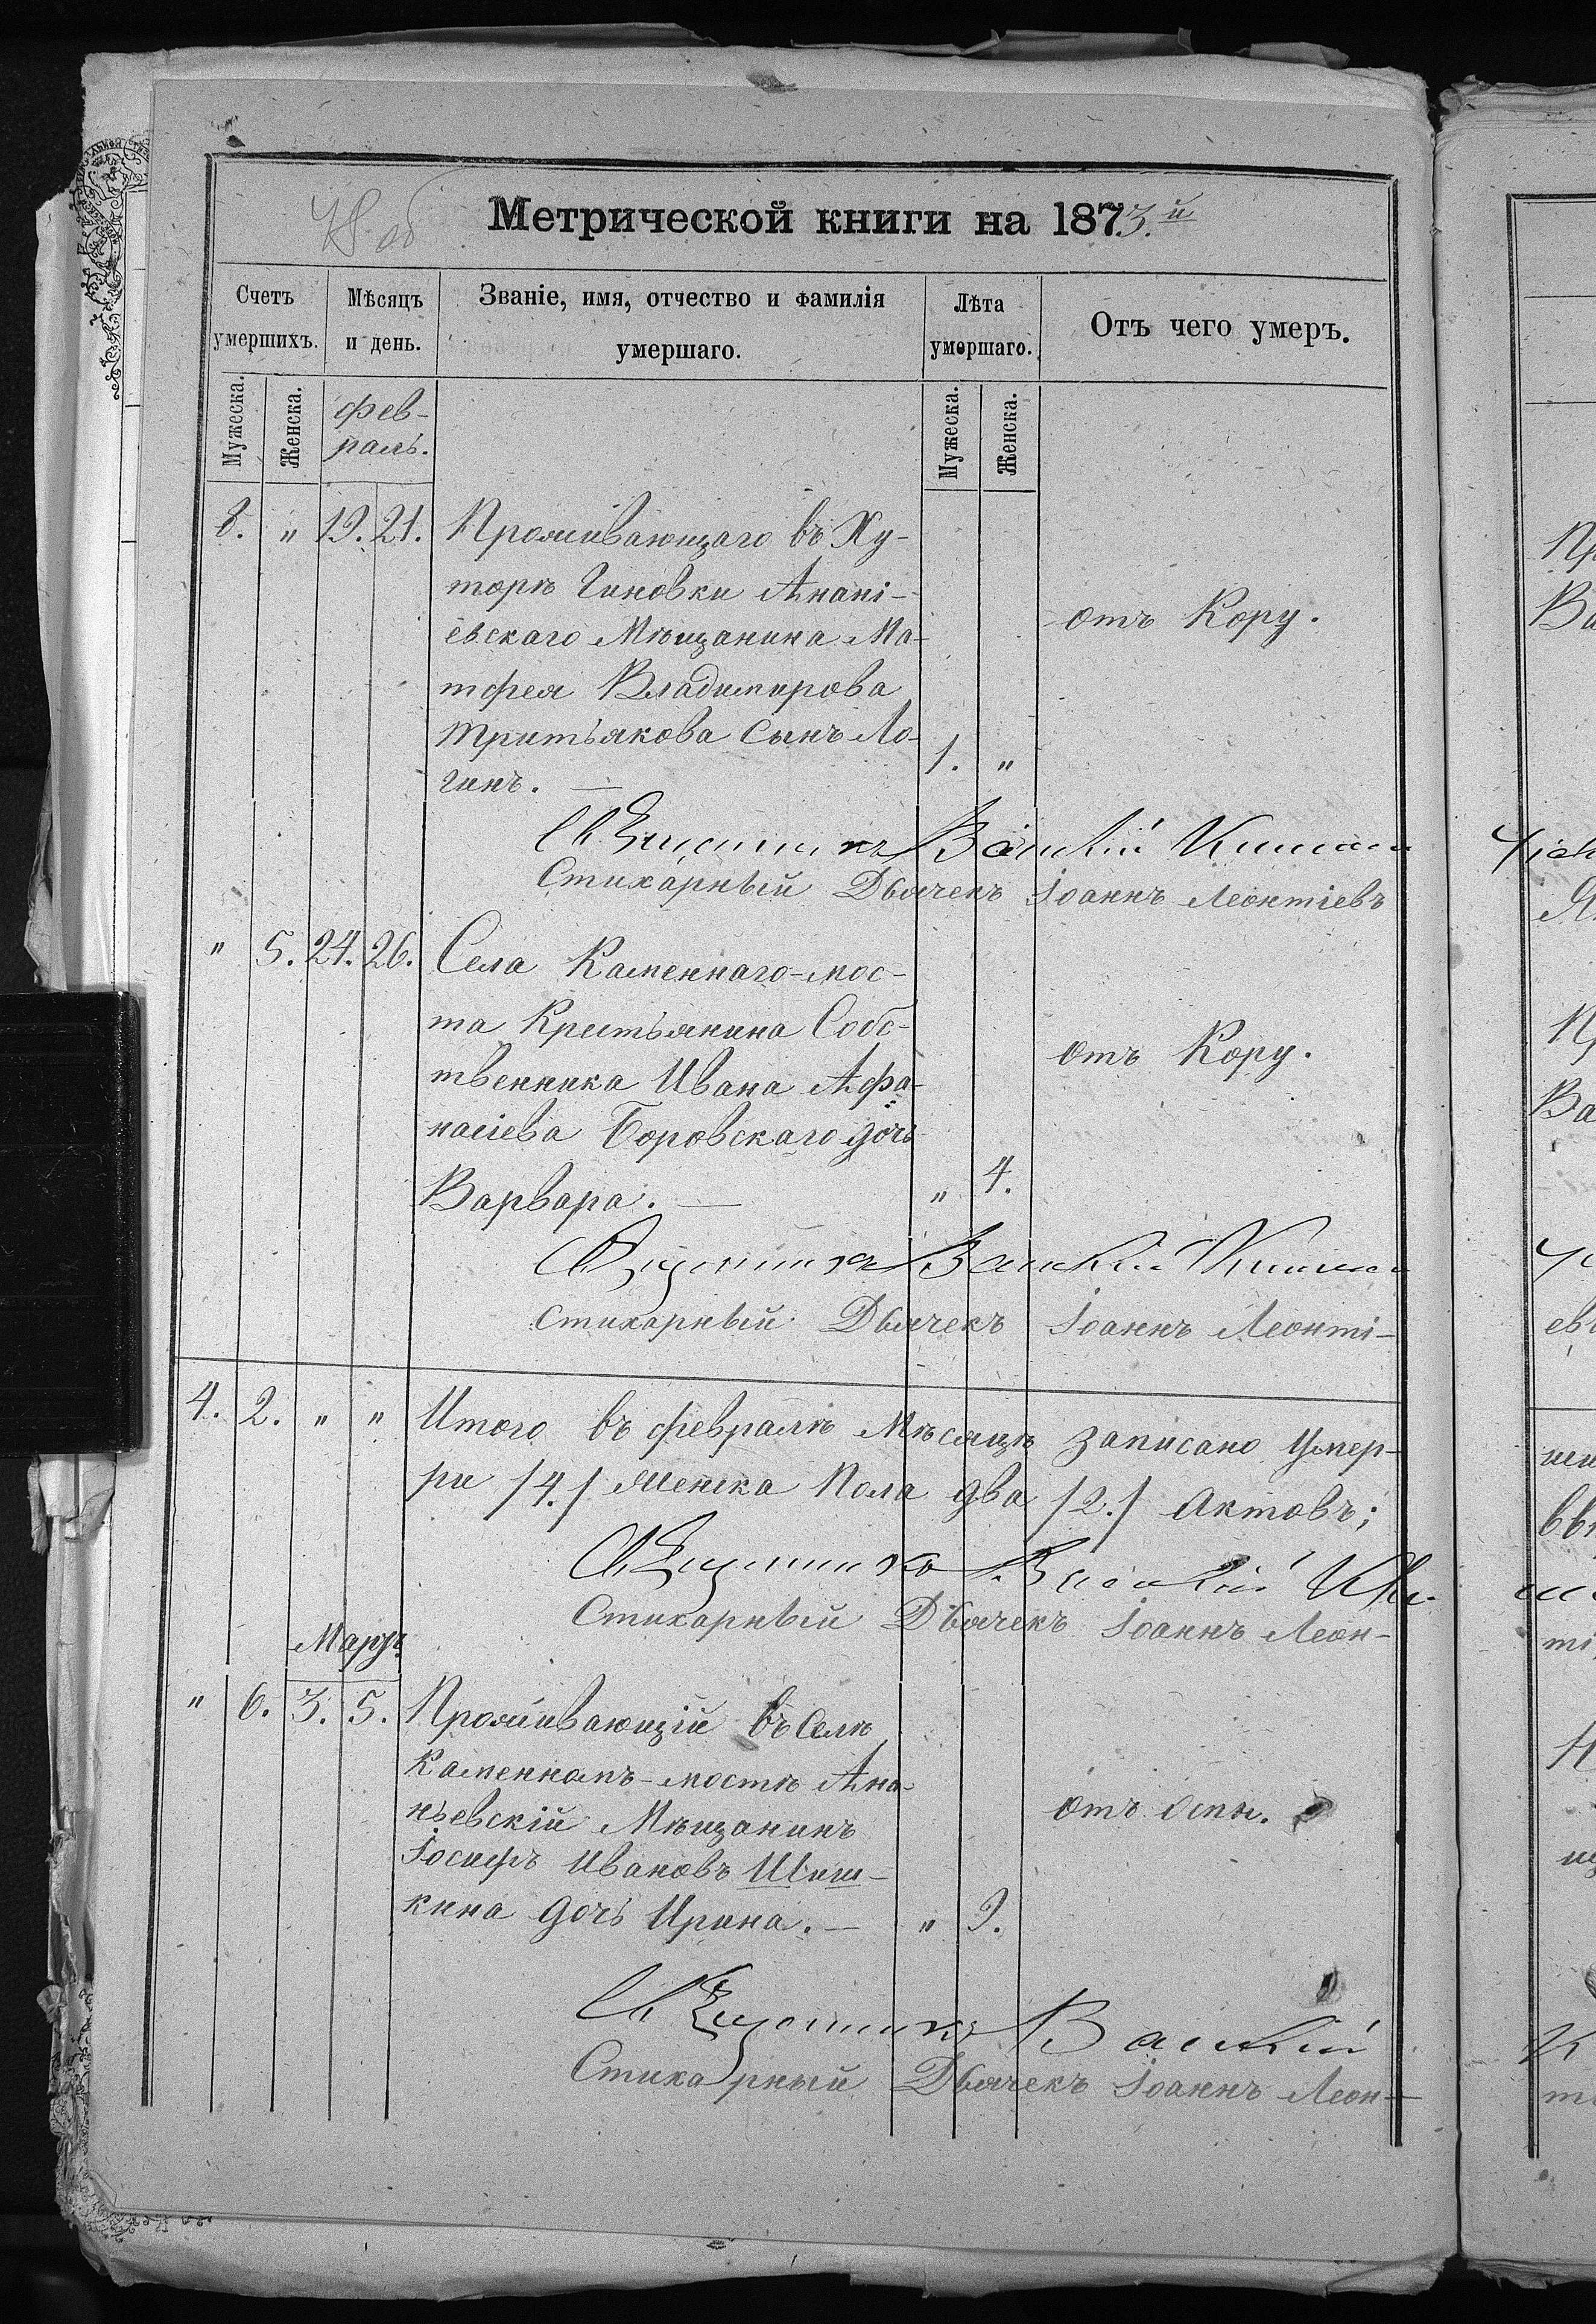 78 об
Метрической книги на 1873.й
Счетъ умершихъ.
Мѣсяцъ и день.
Званіе, имя, отчество и фамилія умершаго.
Лѣта умершаго.
Отъ чего умеръ.
Мужеска.
Женска.
Фев-
раль.
Мужеска.
Женска.
8. " 19. 21. Проживающаго въ Ху-
торѣ Гиновки Анані-
евскаго Мѣщанина Ма-
тфея Владимирова
Третьякова сынъ Ло-
гинъ. — 1. "
отъ Кору.
Священникъ Василій
Стихарный Дьячекъ Іоаннъ Леонтіевъ
" 5. 24. 26. Села Каменнаго-мос-
та Крестьянина Собс-
твенника Ивана Афа-
насіева Боровскаго дочь
Варвара. — " 4.
отъ Кору.
Священникъ Василій
Стихарный Дьячекъ Іоаннъ Леонті-
4. 2. " " Итого въ февралѣ Мѣсяцѣ записано Умер-
ри /4./ Женска Пола два /2./ Актовъ;
Священникъ Василій
Стихарный Дьячекъ Іоаннъ Леон-
Мартъ.
" 6. 3. 5. Проживающій въ Селѣ
Каменномъ-мостѣ Ана-
ньевскій Мѣщанинъ
Іосифъ Ивановъ Шиш-
кина дочь Ирина. — " 9.
отъ оспы.
Священникъ Василій
Стихарный Дьячекъ Іоаннъ Леон-